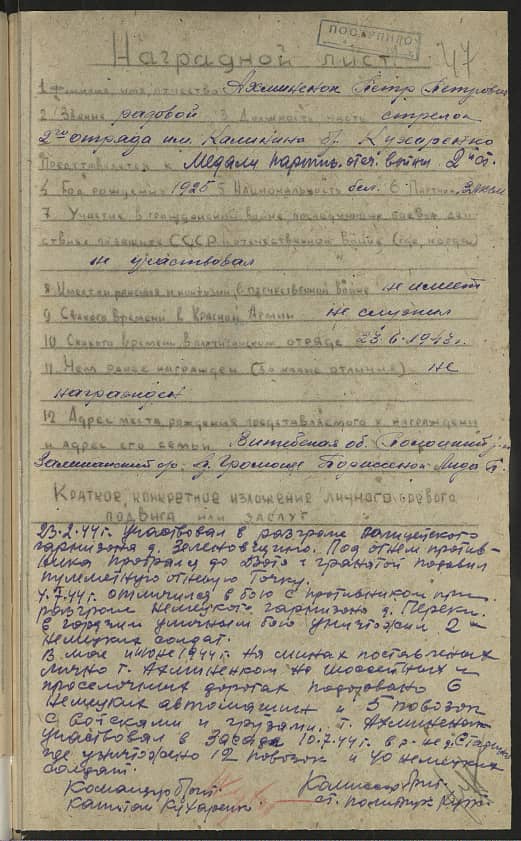 ПОСТУПИЛО
Наградной лист 47
1 Фамилия, имя, отчество Ахлименок Петр Петрович
2 Звание рядовой 3 Должность, часть стрелок
2го отряда им. Калинина бр. Кухаренко
Представляется к Медали партиз. отеч. войны 2й ст.
4 Год рождения 1925 5 Национальность бел. 6 Партийн.
7 Участие в гражданской войне, последующих боевых дей-
ствиях по защите СССР и отечественной войне (где, когда)
не участвовал
8 Имеет ли ранения и контузии в отечественной войне не имеет
9 С какого времени в Красной Армии не служил
10 С какого времени в партизанском отряде 23.6.1943 г.
11 Чем ранее награжден (за какие отличия) не
награжден
12 Адрес места рождения представляемого к награждению
и адрес его семьи Витебская об. Полоцкий
д. Громоще Борисенок Лида П.
Краткое, конкретное изложение личного боевого
подвига или заслуг
23.2.44 г. участвовал в разгроме полицейского
гарнизона д. Зеленовщино. Под огнем против-
ника прополз до ДЗОТа и гранатой подавил
пулеметную огневую точку.
4.7.44 г. отличился в бою с противником при
разгроме немецкого гарнизона д.
В горячем уличном бою уничтожил 2-
немецких солдат.
В мае июне 1944 г. на минах поставленных
лично т. Ахлименком на шоссейных и
проселочных дорогах подорвано 6
немецких автомашин и 5 повозок
с войсками и грузами. т. Ахлименок
участвовал в засаде 10.7.44 г. в р-не д.
где уничтожено 12 повозок и 40 немецких
солдат.
Командир бриг. Комиссар бриг.
капитан Кухаренко ст. политрук